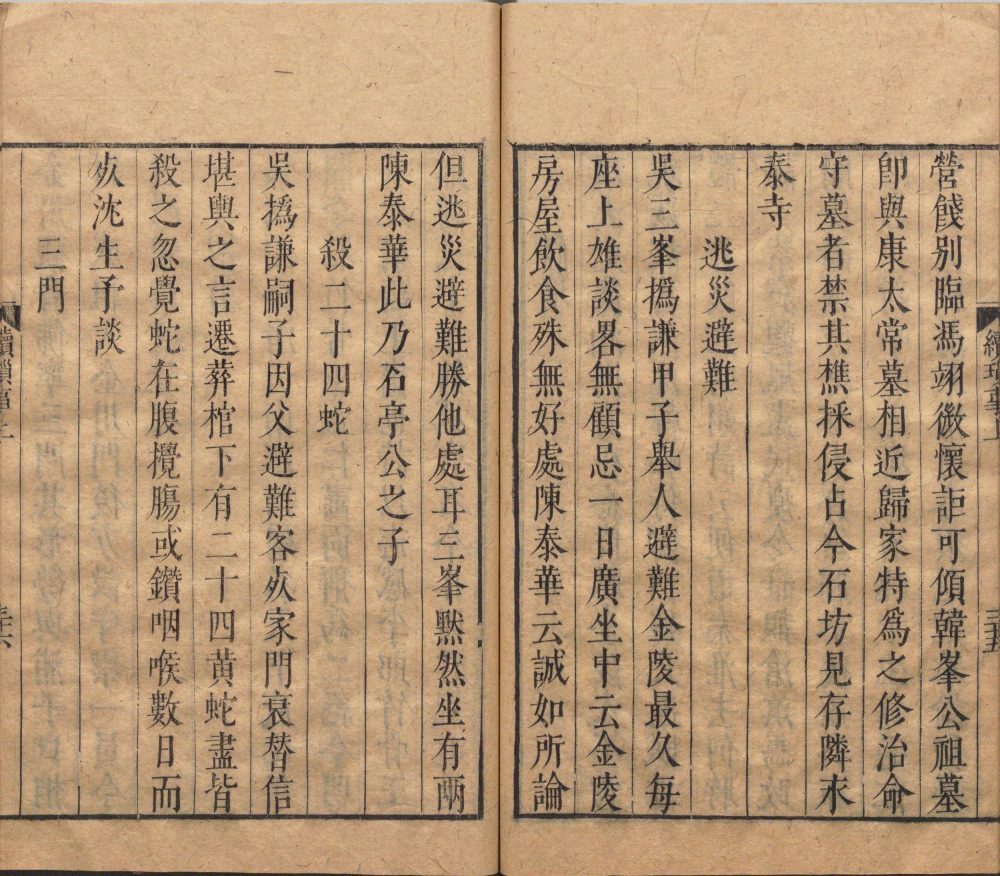 營餞別臨馮翊微懷詎可傾韓峯公祖墓
卽與康太常墓相近歸家特爲之修治命
守墓者禁其樵採侵占今石坊見存隣永
泰寺
逃災避難
吳三峯撝謙甲子舉人避難金陵最久每
座上雄談畧無顧忌一日廣坐中云金陵
房屋飲食殊無好處陳泰華云誠如所論
續瑣事上
三十五
但逃災避難勝他處耳三峯黙然坐有兩
陳泰華此乃石亭公之子
殺二十四蛇
吳撝謙嗣子因父避難客死家門衰替信
堪輿之言遷葬棺下有二十四黄蛇盡皆
殺之忽覺蛇在腹攪腸或鑽咽喉數日而
死沈生予談
三門
續瑣事上
三十六